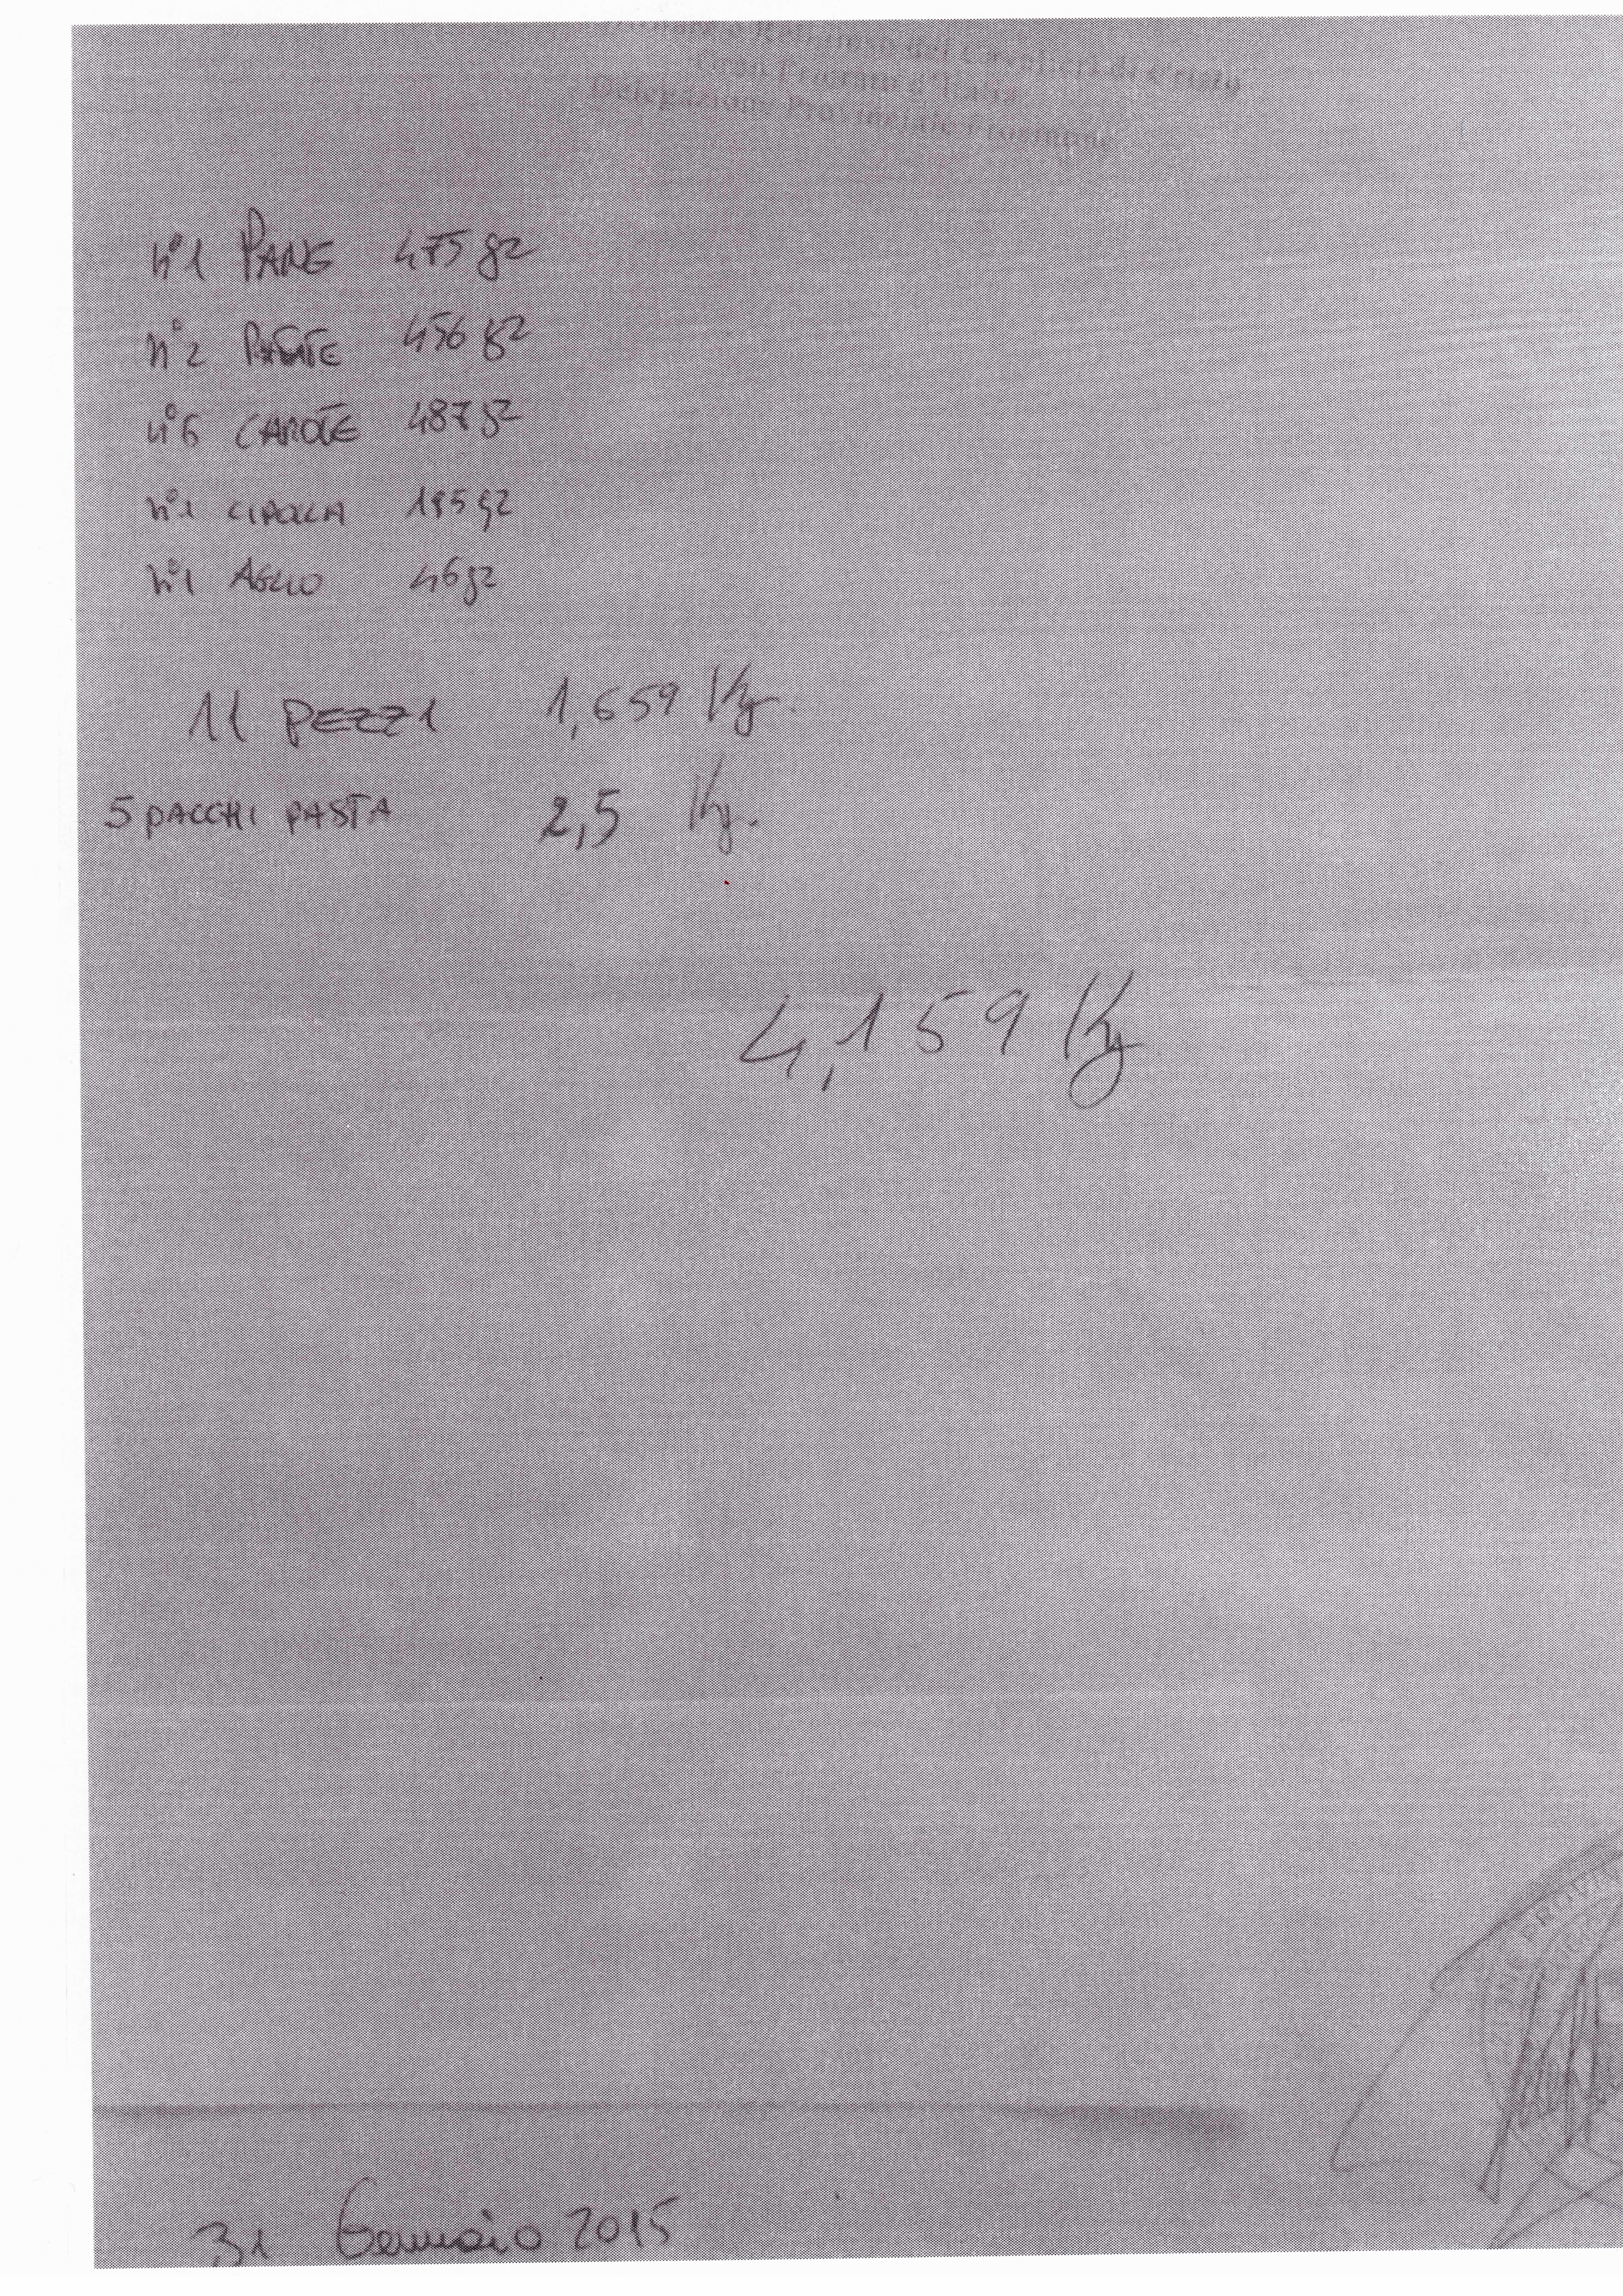 Religioso dei Cavalieri di Cristo
Gran Priorato d'Italia
Delegazione Provinciale Frosinone
n°1 PANE 475 gr
n°2 PATATE 456 gr
n°6 CAROTE 487 gr
n°1 CIPOLLA 195 gr
n°1 AGLIO 46 gr
11 PEZZI 1,659 Kg.
5 PACCHI PASTA 2,5 Kg.
4,159 Kg
ZIONE PROVIN
31 Gennaio 2015